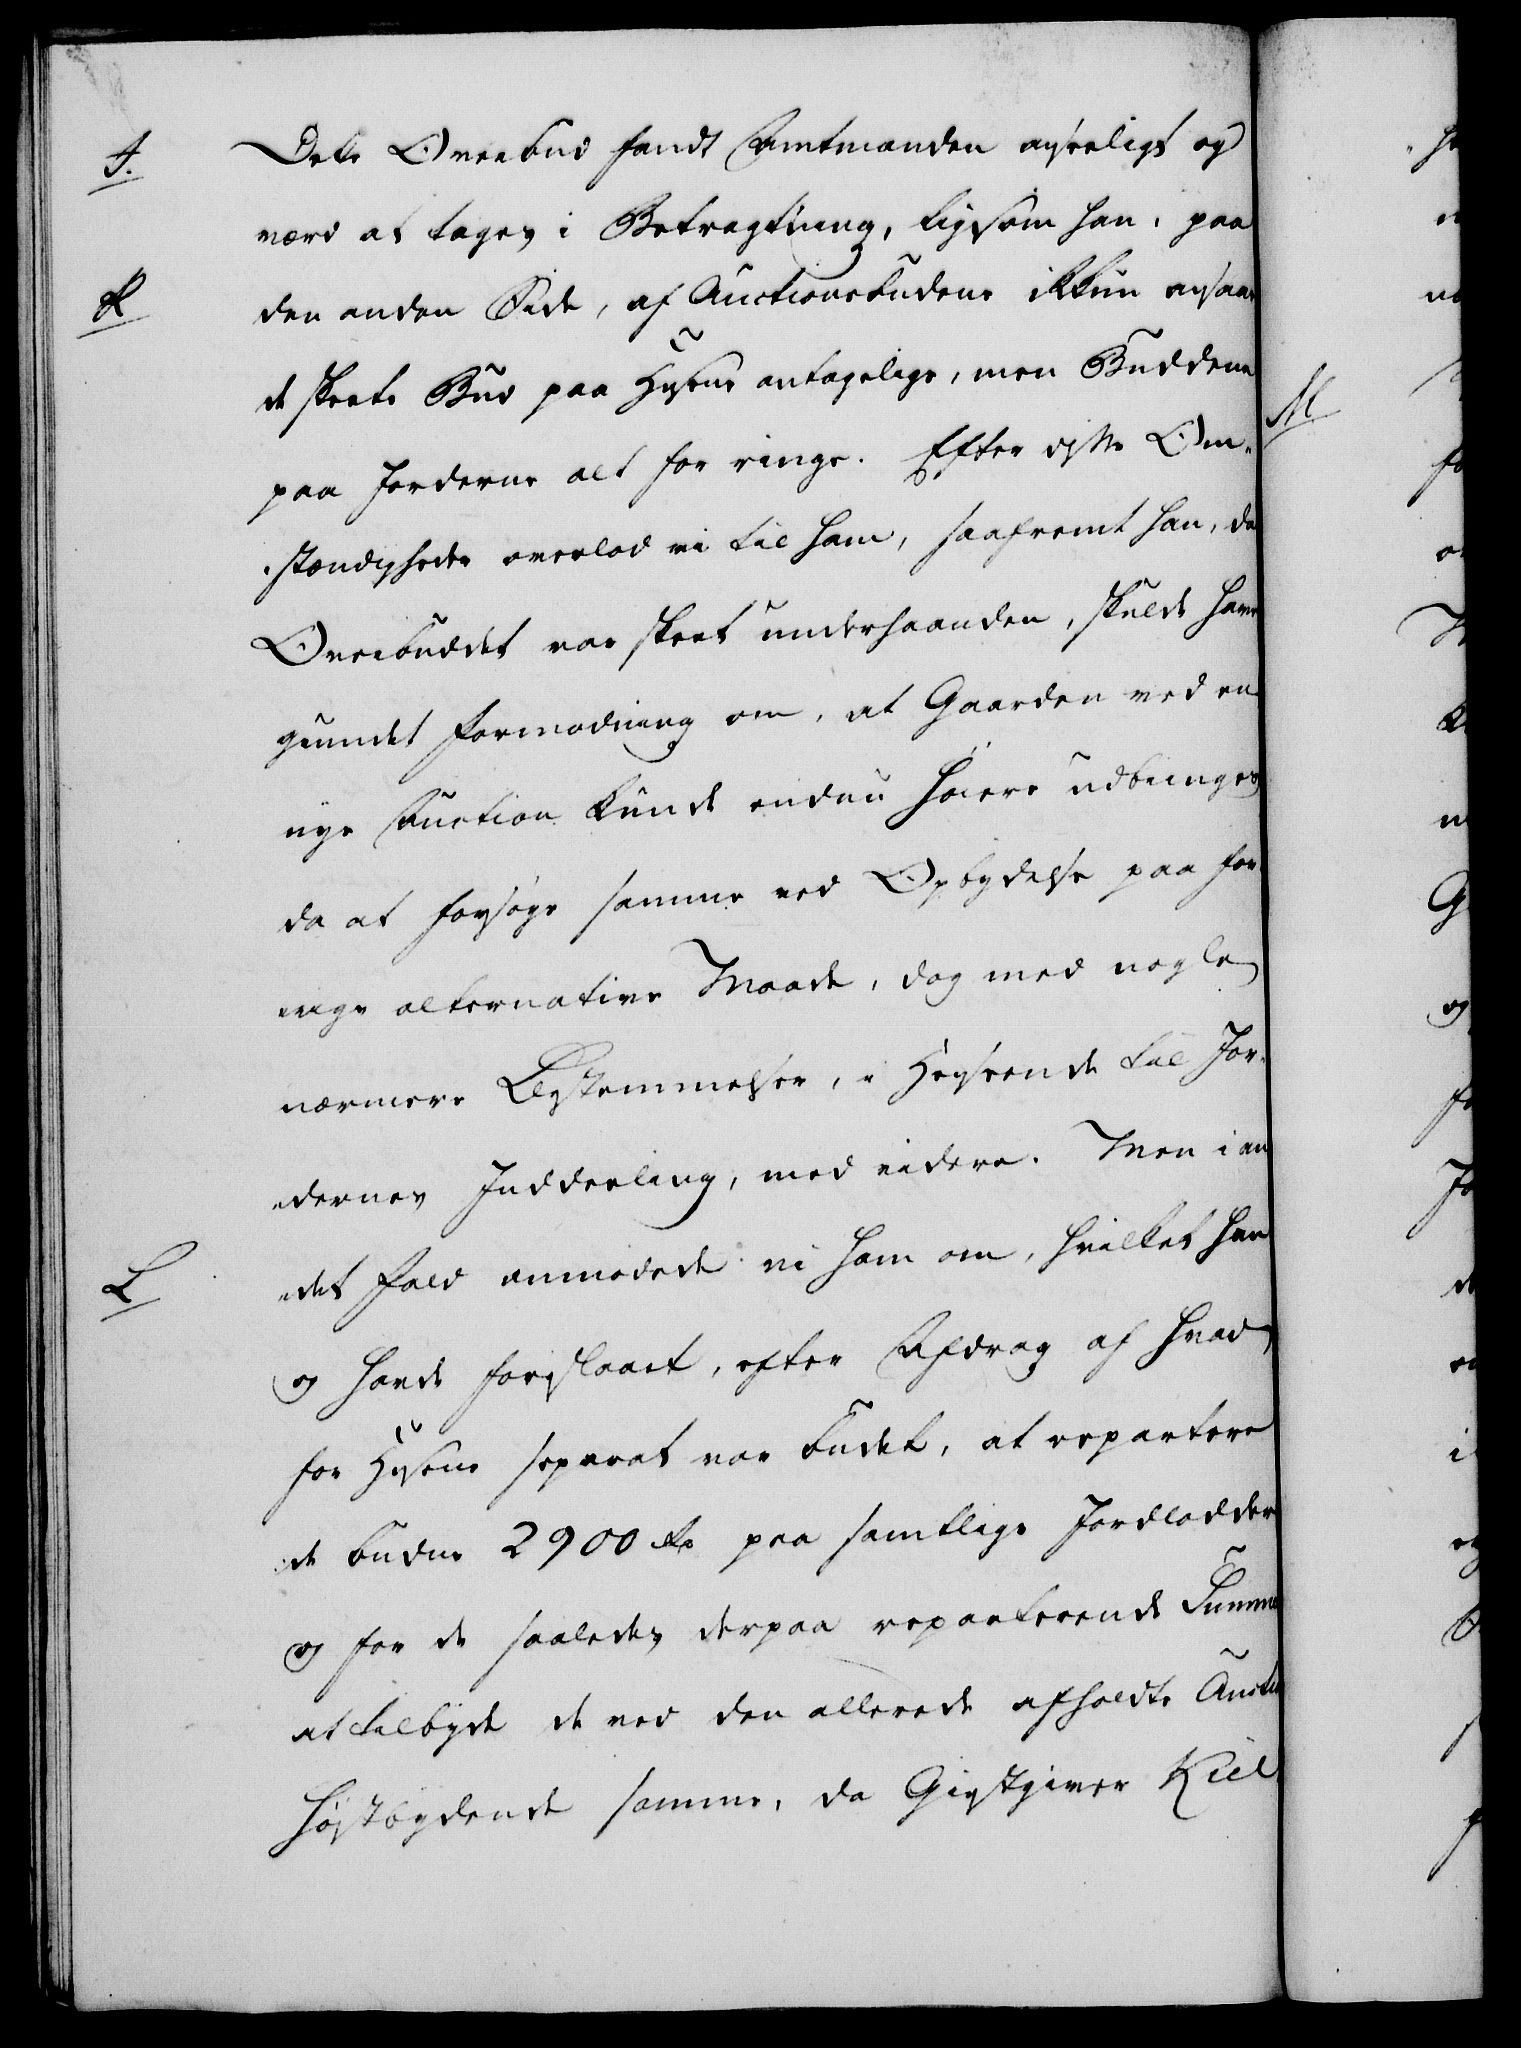 J. Dette Overbud fandt Amtmanden anseeligt og
værd at tages i Betragtning, ligesom han, paa
K den anden Side, af Auctionsbudene ikkun ansaae
de skeete Bud paa Husene antagelige, men Buddene
paa Jorderne alt for ringe. Efter disse Om-
stændigheder overlod vi til ham, saafremt han, da
Overbuddet var skeet underhaanden, skulde have
grundet Formodning om, at Gaarden ved en
nye Auction kunde endnu høiere udbringes
da at forsøge samme ved Opbydelse paa for-
rige alternative Maade, dog med nogle
nærmere Bestemmelser, i Henseende til Jor-
dernes Inddeeling, med videre. Men i an-
L det Fald anmodede vi ham om, hvilket han
og havde foreslaaet, efter Afdrag af hvad
for Husene separat var budet, at repartere
de budne 2900 Rd paa samtlige Jordlodder
og for de saaledes derpaa reparterende Summer
at tilbyde de ved den allerede afholdte Auction
høistbydende samme, da Giestgiver Kiel
M